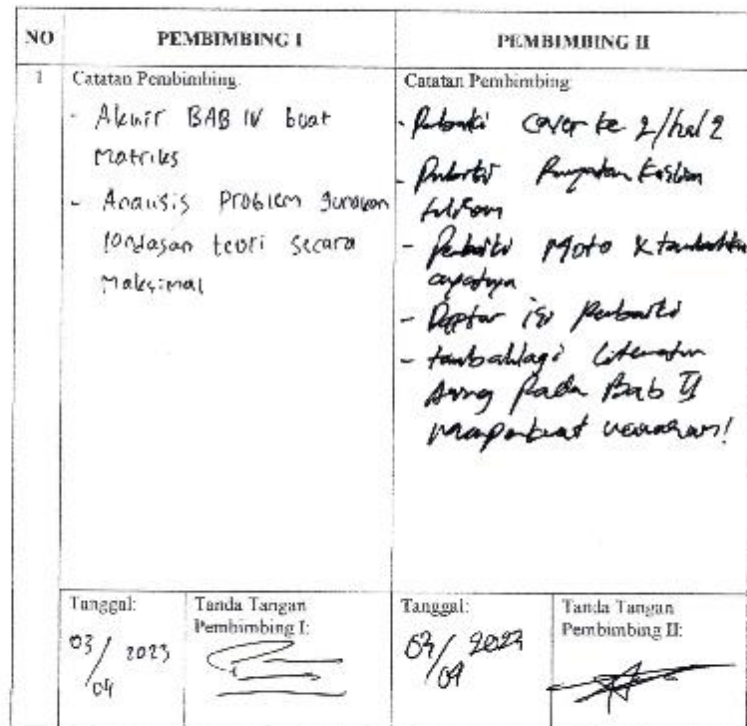 NO PEMBIMBING I PEMBIMBING II
1 Catatan Pembimbing.
- Akhir BAB IV buat
Matriks
- Analisis Problem gunakan
landasan teori secara
Maksimal
Catatan Pembimbing:
- Perbaiki cover ke 2/hal 2
- Perbaiki
- Perbaiki Moto &
- Daptar isi Perbaiki
- tambahlagi Literatur
Asing Pada Bab II
Tanggal:
03/04 2023
Tanda Tangan
Pembimbing I:
Tanggal:
03/04 2023
Tanda Tangan
Pembimbing II: